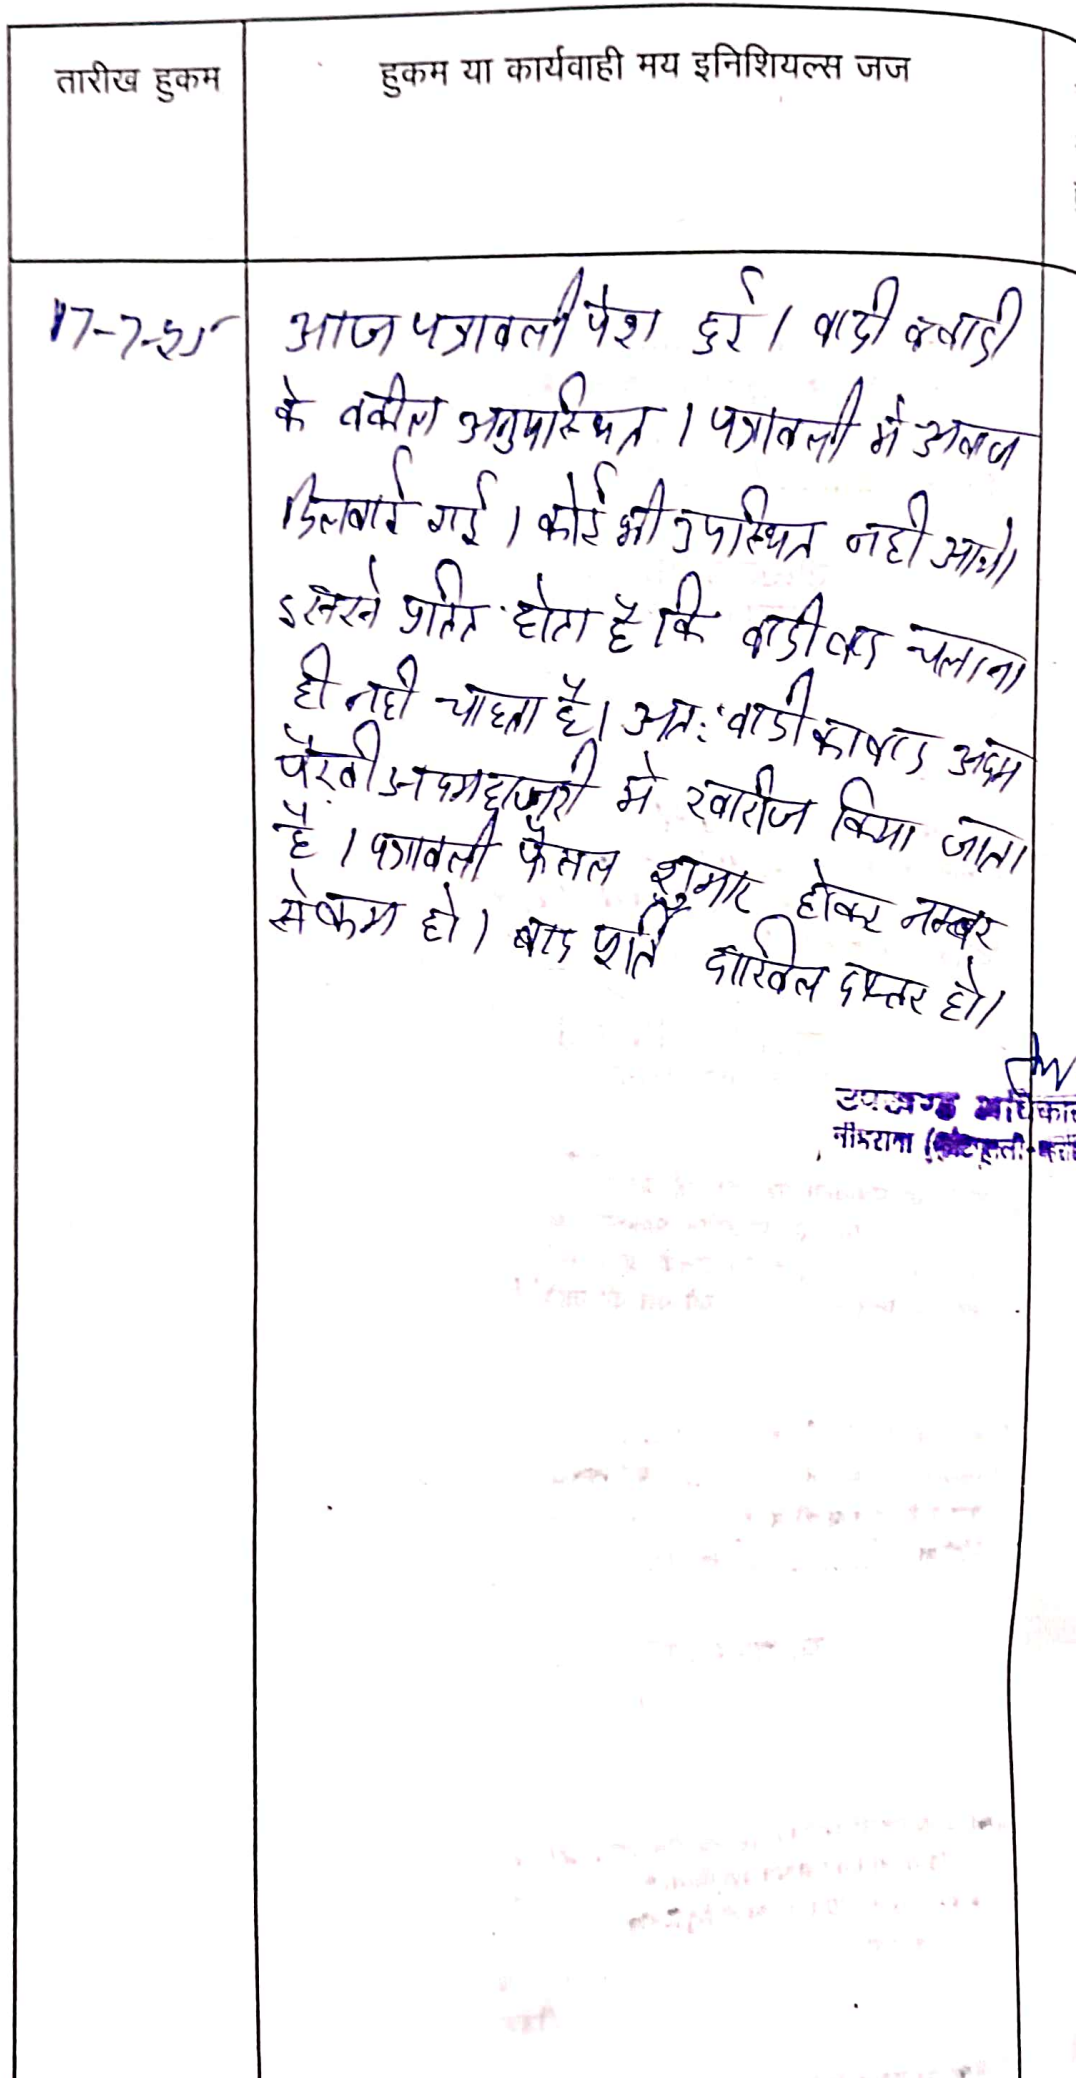 तारीख हुकम
हुकम या कार्यवाही मय इनिशियल्स जज
17-7-25
आज पत्रावली पेश हुई। वादी व वादी
के वकील अनुपस्थित। पत्रावली मे आवाज
दिलवाई गई। कोई भी उपस्थित नही आये।
इससे प्रतित होता है कि वादी वाद चलाना
ही नही चाहता है। अतः वादी का वाद अदम
पैरवी अदमहाजरी मे खारीज किया जाता
है। पत्रावली फैसल शुमार होकर नम्बर
से कम हो। बाद पूर्ति दाखिल दफ्तर हो।
उपखण्ड अधिका
नीमराना